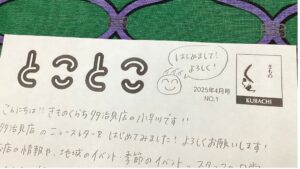 とことこ
はじめまして!
よろしく!
2025年4月号
NO.1
きもの
KURACHI
こんにちは!! きものくらち多治見店の小川です!!
多治見店の ニュースレターを はじめてみました! よろしくお願いします!
店の情報や、地域のイベント 季節のイベント、スタッフの